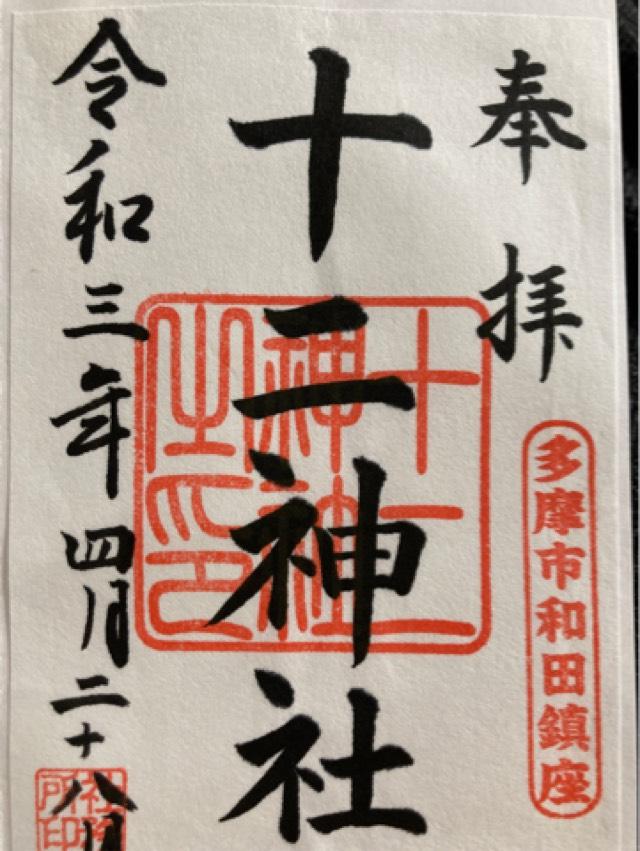 奉拝
多摩市和田鎮座
十二神社
十二神社之印
令和三年四月二十八日